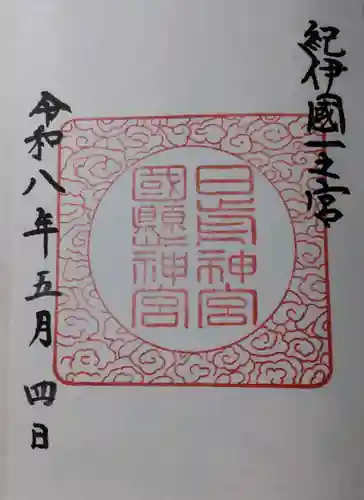 紀伊國一之宮
日前神宮
國縣神宮
令和八年五月四日